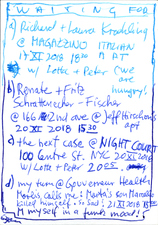 WAITING FOR
a) Richard + Laura
@ MAGAZZINO ITALIAN
17 XI 2018 1800 APT
w/ Lotte + Peter (we are
hungry!
b) Renate + Fritz
Schrottenecker - Fischer
@ 166 2nd ave @ Jeff Hirschorn's
20 XI 2018 1530 apt.
c) the next case @ NIGHT COURT
100 Centre St. NYC 20 XI 2018
w/ Lotte + Peter 2000
d) my term @ Gouverneur Health
calls me: Marta's son
killed himself. so sad; 21 XI 2018
M myself in a funk mood!